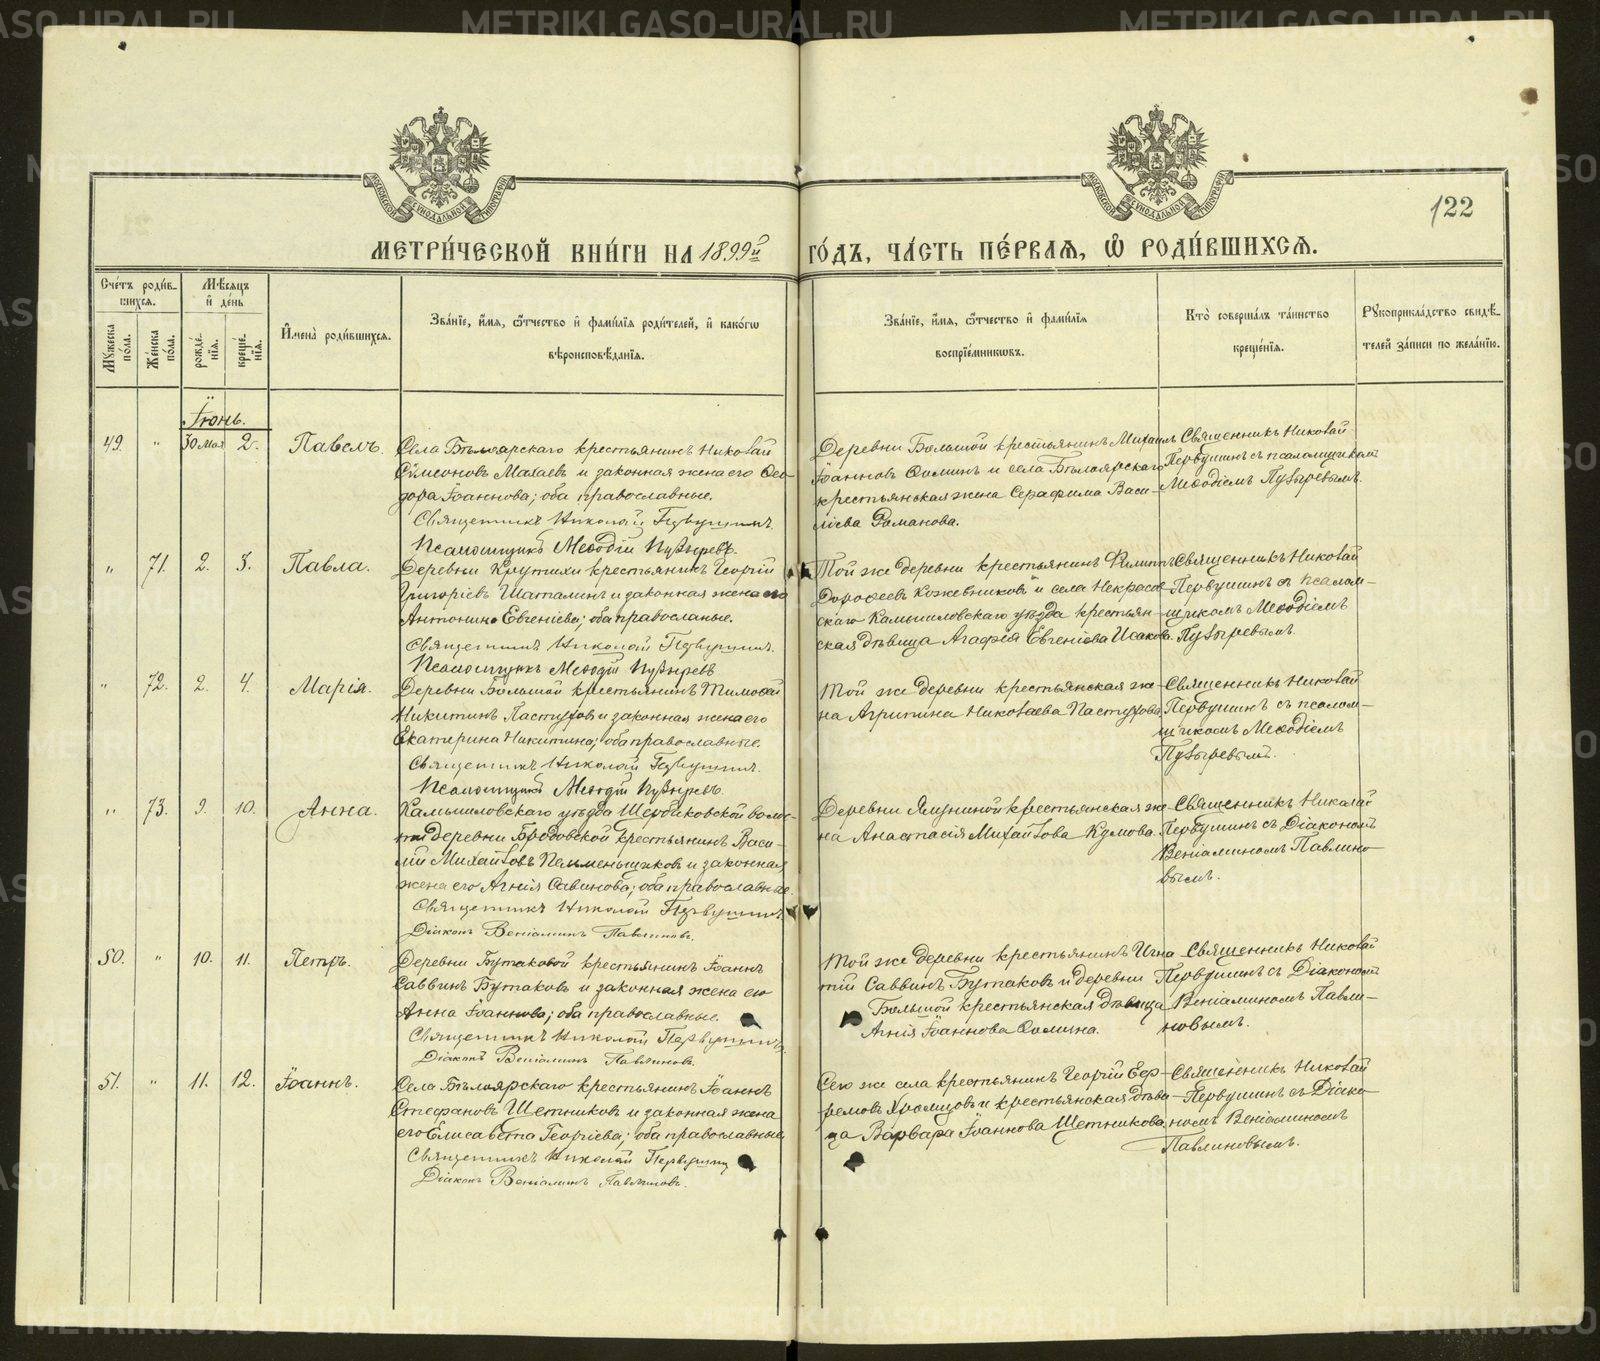 METRIKI.GASO-URAL.RU
122
МЕТРИ́ЧЕСКОЙ КНИ́ГИ НА 1899й ГО́ДЪ, ЧА́СТЬ ПЕ́РВАЯ, Ѡ РОДИ́ВШИХСЯ.
Сче́тъ роди́в-
шихся.
Мѣ́сяцъ
и де́нь
Му́жеска по́ла.
Же́нска по́ла.
рожде́нія.
креще́нія.
Имена̀ роди́вшихся.
Зва́ніе, и́мя, о́тчество и фами́лія роди́телей, и како́гѡ
вѣроисповѣ́данія.
Зва́ніе, и́мя, о́тчество и фами́лія
воспріе́мниковъ.
Кто̀ соверша́лъ та́инство
креще́нія.
Рукоприкла́дство свидѣ́-
телей за́писи по жела́нію.
Іюнь.
49. " 30 мая 2. Павелъ.
Села Бѣлоярскаго крестьянинъ Николай
Сѵмеоновъ Малаевъ и законная жена его Ѳео-
дора Іоаннова; оба православные.
Священникъ Николай Первушинъ.
Псаломщикъ Меѳодій Пузыревъ.
Деревни Большой крестьянинъ Михаилъ
Іоанновъ Ѳоминъ и села Бѣлоярскаго
крестьянская жена Серафима Васи-
ліева Романова.
Священникъ Николай
Первушинъ съ псаломщикомъ
Меѳодіемъ Пузыревымъ.
" 71. 2. 3. Павла.
Деревни Крутихи крестьянинъ Георгій
Григоріевъ Шаталинъ и законная жена его
Антонина Евгеніева; оба православные.
Священникъ Николай Первушинъ.
Псаломщикъ Меѳодій Пузыревъ
Той же деревни крестьянинъ Филиппъ
Дороѳеевъ Кожевниковъ и села Некрасов-
скаго Камышловскаго уѣзда крестьян-
ская дѣвица Агафія Евгеніева Исакова.
Священникъ Николай
Первушинъ съ псалом-
щикомъ Меѳодіемъ
Пузыревымъ.
" 72. 2. 4. Марія.
Деревни Большой крестьянинъ Тимоѳей
Никитинъ Пастуховъ и законная жена его
Екатерина Никитина; оба православные.
Священникъ Николай Первушинъ.
Псаломщикъ Меѳодій Пузыревъ.
Той же деревни крестьянская же-
на Агрипина Николаева Пастухова.
Священникъ Николай
Первушинъ съ псалом-
щикомъ Меѳодіемъ
Пузыревымъ.
" 73. 9. 10. Анна.
Камышловскаго уѣзда Щербаковской волос-
ти деревни Бродовской крестьянинъ Васи-
лій Михайловъ Пельменьщиковъ и законная
жена его Агнія Савинова; оба православные.
Священникъ Николай Первушинъ.
Діаконъ Веніаминъ Павлиновъ.
Деревни Ялуниной крестьянская же-
на Анастасія Михайлова Кузмова.
Священникъ Николай
Первушинъ съ Діакономъ
Веніаминомъ Павлино-
вымъ.
50. " 10. 11. Петръ.
Деревни Бутаковой крестьянинъ Іоаннъ
Саввинъ Бутаковъ и законная жена его
Анна Іоаннова; оба православные.
Священникъ Николай Первушинъ.
Діаконъ Веніаминъ Павлиновъ.
Той же деревни крестьянинъ Игна-
тій Саввинъ Бутаковъ и деревни
Большой крестьянская дѣвица
Агнія Іоаннова Ѳомина.
Священникъ Николай
Первушинъ съ Діакономъ
Веніаминомъ Павли-
новымъ.
51. " 11. 12. Іоаннъ.
Села Бѣлоярскаго крестьянинъ Іоаннъ
Стефановъ Щетниковъ и законная жена
его Елисавета Георгіева; оба православные
Священникъ Николай Первушинъ
Діаконъ Веніаминъ Павлиновъ.
Сего же села крестьянинъ Георгій Еф-
ремовъ Храмцовъ и крестьянская дѣви-
ца Варвара Іоаннова Щетникова.
Священникъ Николай
Первушинъ съ Діако-
номъ Веніаминомъ
Павлиновымъ.